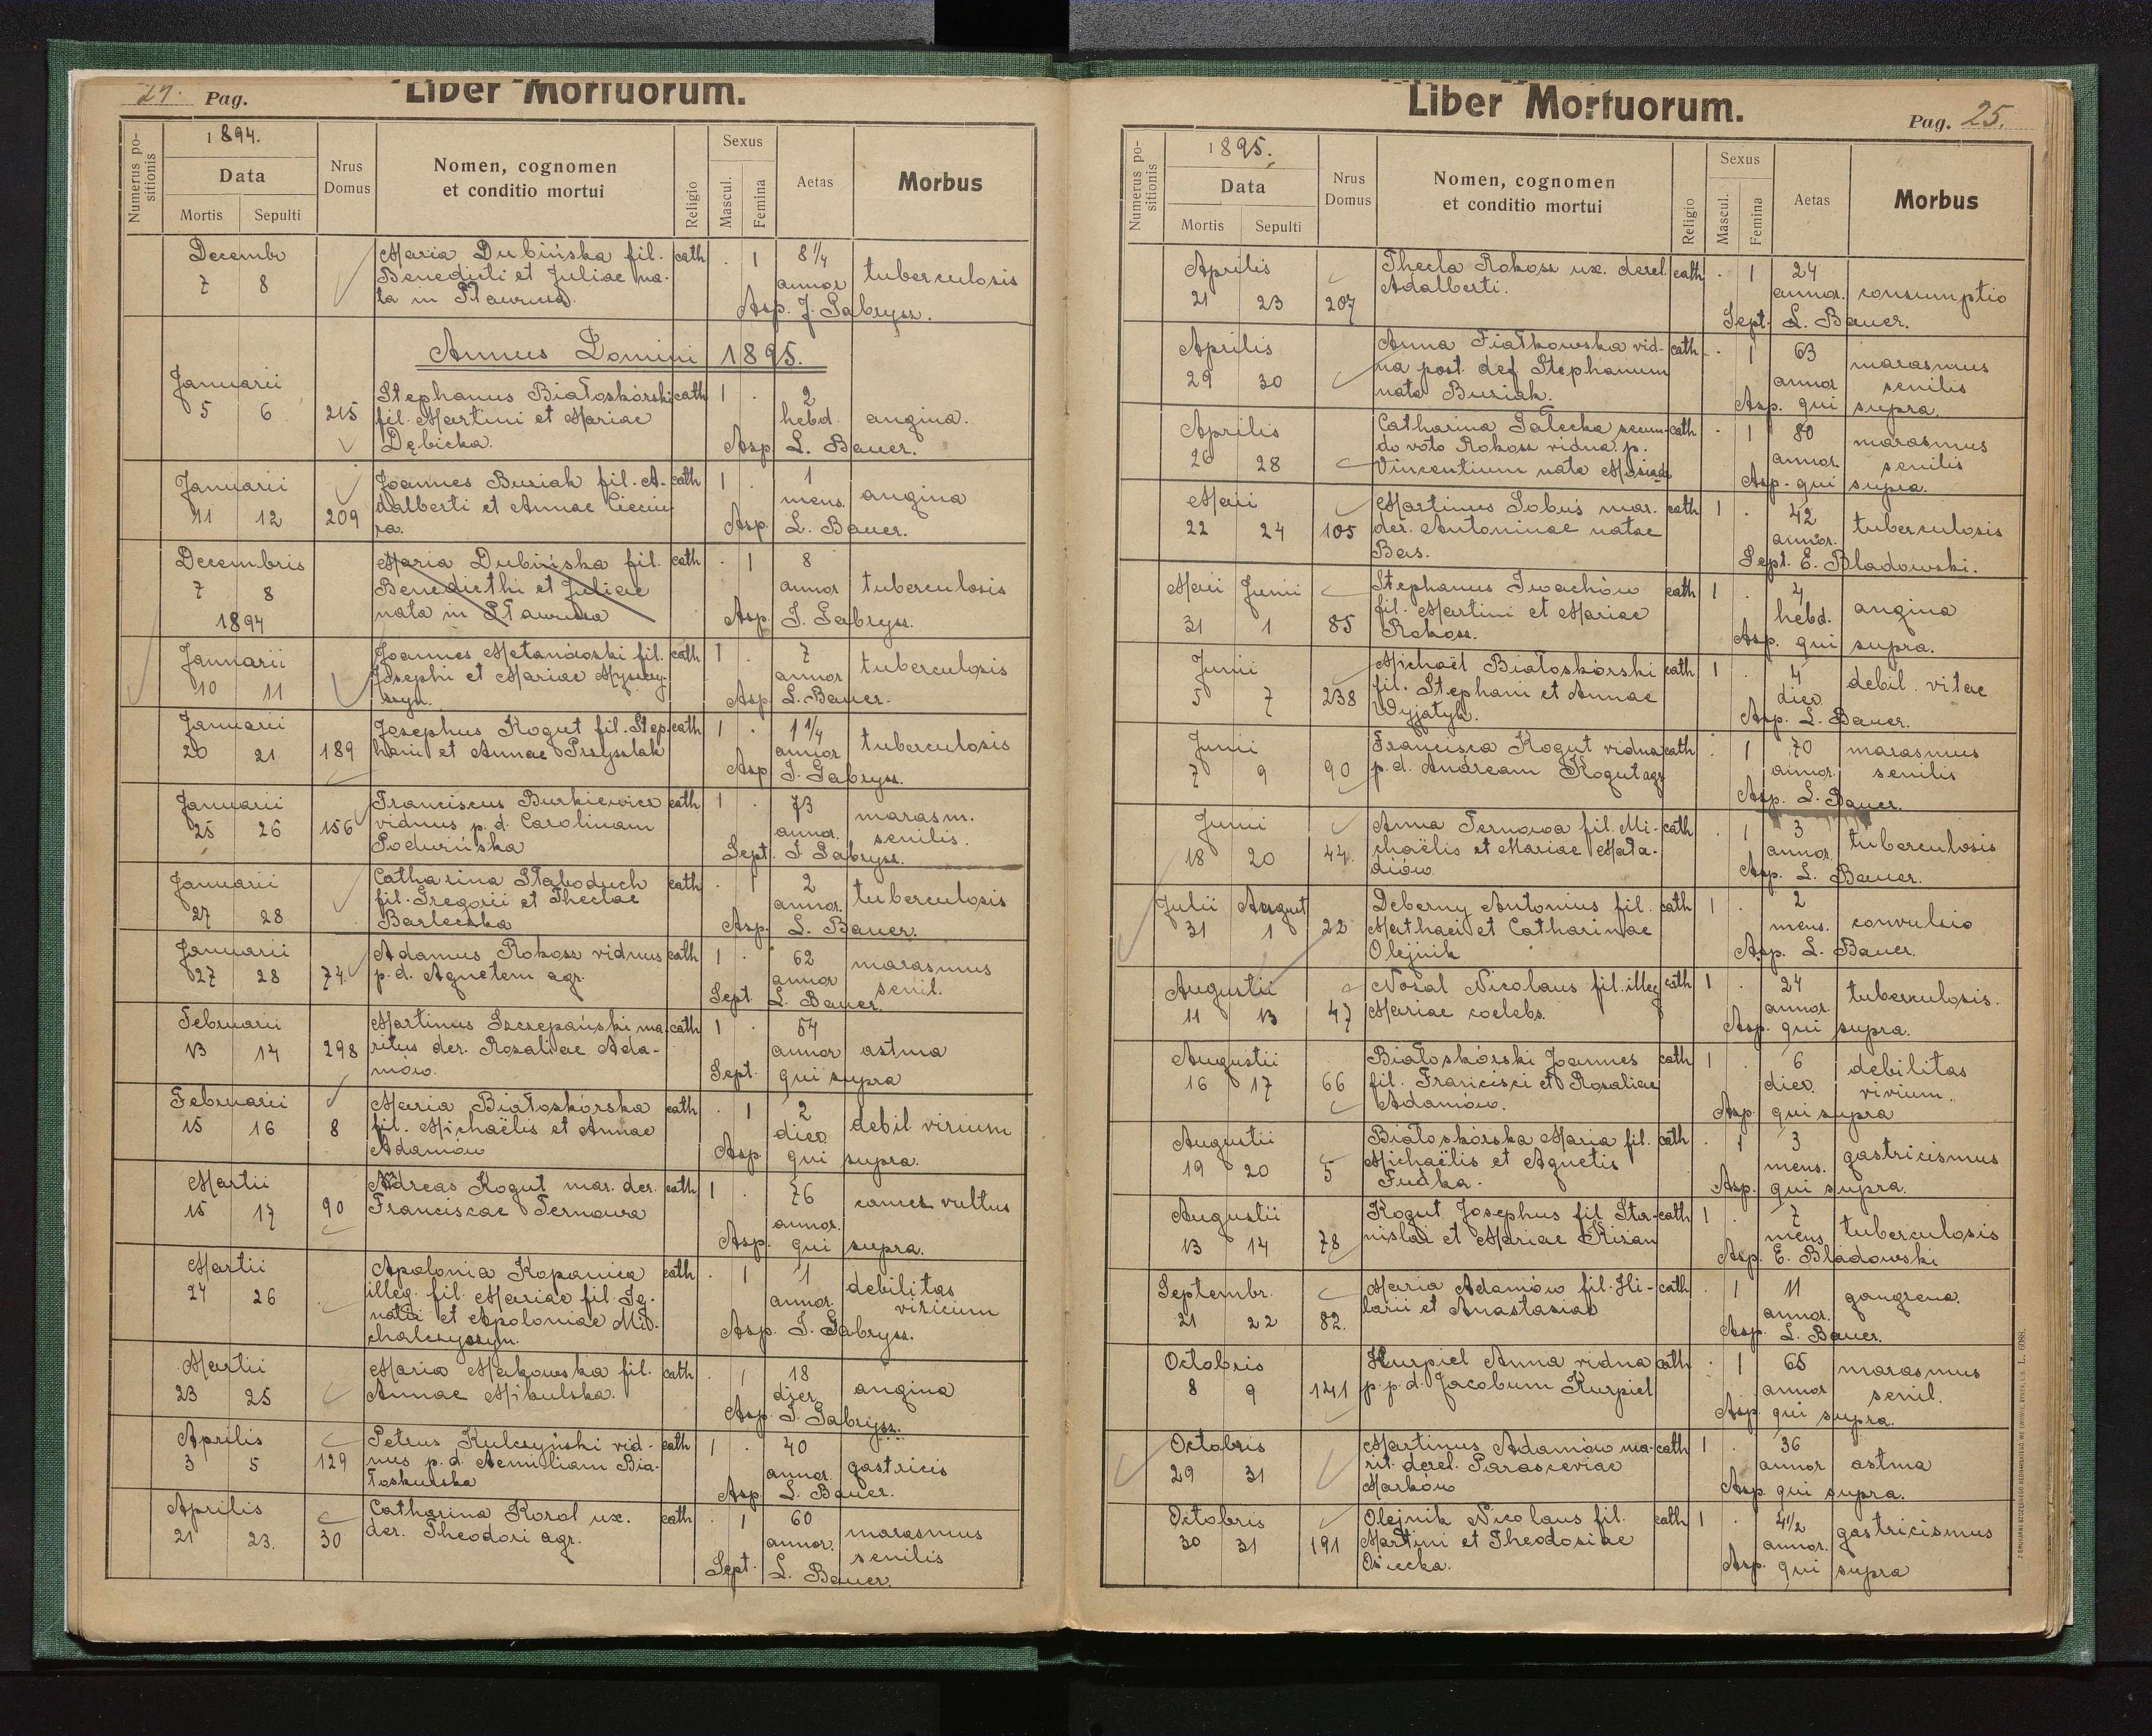 24. Pag.
Liber Mortuorum.
Numerus positionis
1894.
Data
Mortis Sepulti
Nrus Domus
Nomen, cognomen
et conditio mortui
Religio
Sexus
Mascul. Femina
Aetas
Morbus
Decembr Maria Dubińska fil. cath . 1 8 1/4
7 8 Benedicti et Juliae na- annor tuberculosis
ta in Pławucza. Asp. J. Gabrysz.
Annus Domini 1895.
Januarii Stephanus Białoskórski cath 1 . 2
5 6 215 fil. Martini et Mariae hebd. angina.
Dębicka. Asp. L. Bauer.
Januarii Joannes Busiak fil. A- cath 1 . 1
11 12 209 dalberti et Annae Cieciu- mens. angina
ra. Asp. L. Bauer.
Decembris Maria Dubińska fil. cath . 1 8
7 8 Benedicthi et Juliae annor tuberculosis
1894 nata in Pławucza Asp. J. Gabrysz.
Januarii Joannes fil. cath 1 . 7
10 11 Josephi et Mariae annor tuberculosis
Asp. L. Bauer.
Januarii Josephus Kogut fil. Step- cath 1 . 1 1/4
20 21 189 hani et Annae Przyszlak annor tuberculosis
Asp J. Gabrysz.
Januarii Franciscus Burkiewicz cath 1 . 73 marasm.
25 26 156 viduus p. d. Carolinam annor. senilis.
Podwińska Sept. J. Gabrysz.
Januarii Catharina Słaboduch cath . 1 2
27 28 fil. Gregorii et Theclae annor. tuberculosis
Barlecka Asp. L. Bauer.
Januarii Adamus Rokosz viduus cath 1 . 62 marasmus
27 28 74. p. d. Agnetem agr. annor senil.
Sept. L. Bauer
Februarii Martinus Szczepański ma- cath 1 . 54
13 14 298 ritus der. Rosaliae Ada- annor astma
mów. Sept. qui supra
Februarii Maria Białoskórska cath . 1 2
15 16 8 fil. Michaëlis et Annae dier. debil virium
Adamów Asp. qui supra.
Martii Andreas Kogut mar. der. cath 1 . 76
15 17 90 Franciscae Ternowa annor. vultus
Asp. qui supra.
Martii Apolonia Kopanica cath . 1 1 debilitas
24 26 illeg. fil. Mariae fil. Ig- annor. virium
natii et Apoloniae Mi-
chalczyszyn. Asp. J. Gabrysz.
Martii Maria Makowska fil. cath . 1 18
23 25 Annae Mikulska. dier. angina
Asp. J. Gabrysz.
Aprilis Petrus Kulczyński vid- cath 1 . 40
3 5 129 uus p. d. Aemiliam Bia- annor. gastricis
łoskurska Asp. L. Bauer.
Aprilis Catharina Korol ux. cath . 1 60 marasmus
21 23. 30 der. Theodori agr. annor. senilis
Sept. L. Bauer.
Liber Mortuorum.
Pag. 25.
Numerus positionis
1895.
Data
Mortis Sepulti
Nrus Domus
Nomen, cognomen
et conditio mortui
Religio
Sexus
Mascul. Femina
Aetas
Morbus
Aprilis Thecla Rokosz ux. derel. cath . 1 24
21 23 207 Adalberti. annor. consumptio
Sept. L. Bauer.
Aprilis Anna Fiałkowska vid- cath . 1 63 marasmus
29 30 ua post. def Stephanum annor senilis
nata Busiak. Asp. qui supra
Aprilis Catharina Gałecka secun- cath . 1 80 marasmus
26 28 do voto Rokosz vidua p. annor. senilis
Vincentium nata Asp. qui supra.
Maii Martinus Sobuś mar. cath 1 . 42
22 24 105 der. Antoninae natae annor. tuberculosis
Bas. Sept. E. Bladowski.
Maii Junii Stephanus Iwachów cath 1 . 4
31 1 85 fil. Martini et Mariae hebd. angina
Rokosz. Asp. qui supra.
Junii Michaël Białoskórski cath 1 . 4 debil. vitae
5 7 238 fil. Stephani et Annae dier.
Wyjatyk. Asp. L. Bauer.
Junii Francisca Kogut vidua cath . 1 70 marasmus
7 9 90 p. d. Andream Kogut agr annor. senilis
Asp. L. Bauer.
Junii Anna Ternowa fil. Mi- cath . 1 3
18 20 44. chaëlis et Mariae Mata- annor. tuberculosis
diów. Asp. L. Bauer.
Julii August Deberny Antonius fil. cath 1 . 2
31 1 22 Mathaei et Catharinae mens. convulsio
Olejnik Asp. L. Bauer.
Augustii Nosal Nicolaus fil. illeg cath 1 . 24
11 13 47 Mariae coelebs. annor. tuberculosis.
Asp. qui supra.
Augustii Białoskórski Joannes cath 1 . 6 debilitas
16 17 66 fil. Francisci et Rosaliae dier. virium.
Adamów. Asp. qui supra
Augustii Białoskórska Maria fil. cath . 1 3
19 20 5 Michaëlis et Agnetis mens. gastricismus
Fudka. Asp. qui supra.
Augustii Kogut Josephus fil Sta- cath 1 . 7
13 14 78 nislai et Mariae Kizan mens. tuberculosis
Asp. E. Bladowski
Septembr. Maria Adamów fil. Hi- cath . 1 11
21 22 82. larii et Anastasiae annor. gangrena.
Asp. L. Bauer.
Octobris Kurpiel Anna vidua cath . 1 65 marasmus
8 9 141 p. p. d. Jacobum Kurpiel annor senil.
Asp. qui supra.
Octobris Martinus Adamów ma- cath 1 . 36
29 31 rit. derel. Parasceviae annor astma
Marków Asp. qui supra.
Octobris Olejnik Nicolaus fil. cath 1 . 4 1/2
30 31 191 Martini et Theodosiae annor. gastricismus
Osiecka. Asp. qui supra